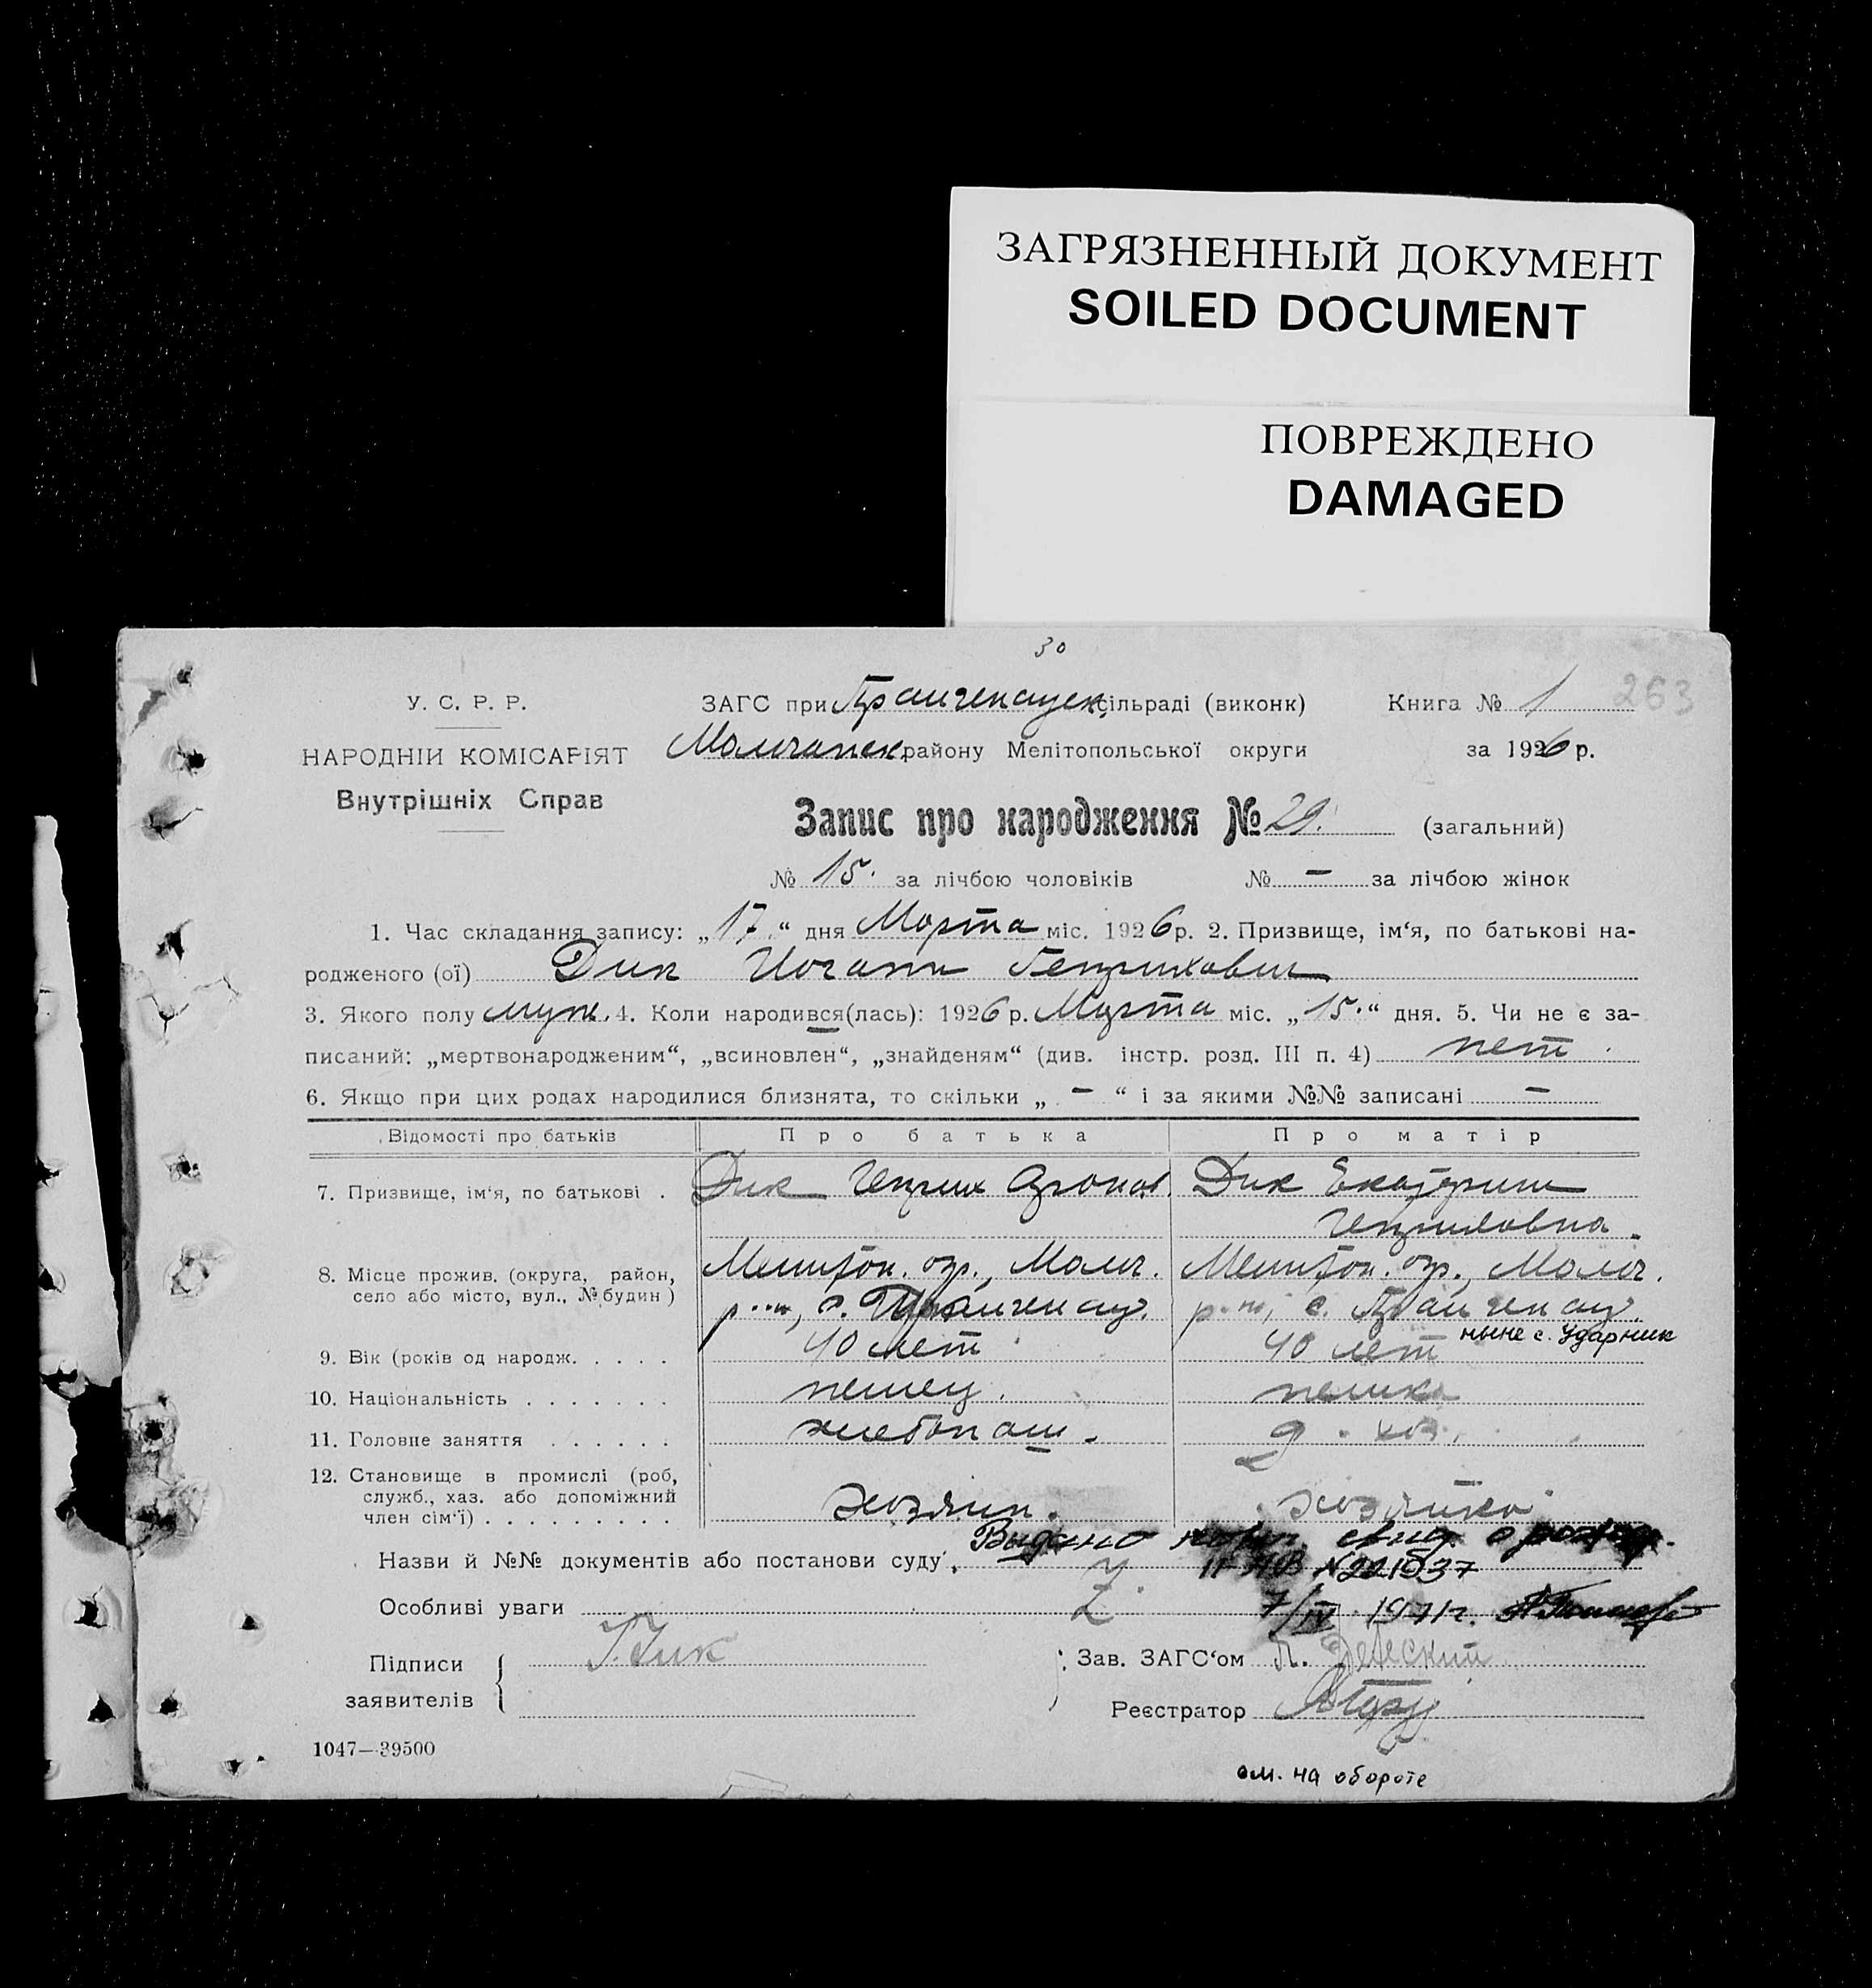 ЗАГРЯЗНЕННЫЙ ДОКУМЕНТ
SOILED DOCUMENT
ПОВРЕЖДЕНО
DAMAGED
30
У. С. Р. Р.
ЗАГС при сільраді (виконк)
Книга № 1 263
НАРОДНІЙ КОМІСАРІЯТ
Молочанск. району Мелітопольської округи
за 1926 р.
Внутрішніх Справ
Запис про народження № 29. (загальний)
№ 15. за лічбою чоловіків № — за лічбою жінок
1. Час складання запису: „17“ дня Марта міс. 1926 р. 2. Призвище, ім‘я, по батькові на-
родженого (ої) Дик Иоганн Генрихович
3. Якого полу муж. 4. Коли народився(лась): 1926 р. Марта міс. „15.“ дня. 5. Чи не є за-
писаний: „мертвонародженим“, „всиновлен“, „знайденям“ (див. інстр. розд. III п. 4) нет.
6. Якщо при цих родах народилися близнята, то скільки „ — “ і за якими №№ записані —
Відомості про батьків Про батька Про матір
7. Призвище, ім‘я, по батькові . Дик Генрих Аронов. Дик Екатерина
Генриховна.
8. Місце прожив. (округа, район, Мелитоп. окр., Молоч. Мелитоп. окр., Молоч.
село або місто, вул., № будин) р-н, с. р-н, с.
ныне с. Ударник
9. Вік (років од народж. . . . . 40 лет 40 лет
10. Національність . . . . . . . немец. немка
11. Головне заняття . . . . . . хлебопаш. д. хоз.
12. Становище в промислі (роб,
служб., хаз. або допоміжний
член сім‘ї) . . . . . . . . . хозяин. хозяйка
Выдано повт. свид. о рожд.
Назви й №№ документів або постанови суду, № 221537
Особливі уваги Z 7/IV 1971г.
Підписи Г. Дик
заявителів
Зав. ЗАГС‘ом
Реєстратор
1047—39500
см. на обороте